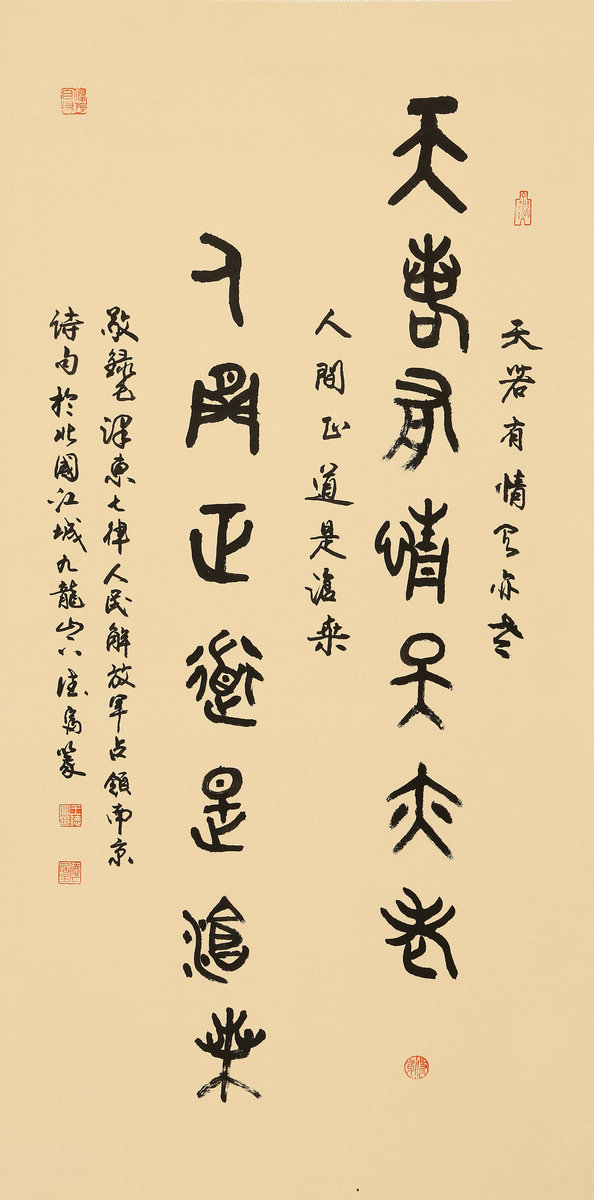 天若有情天亦老
天若有情天亦老
人間正道是滄桒
人間正道是滄桒
敬録毛澤東七律人民解放軍占領南京
詩句於北國江城九龍山德篆